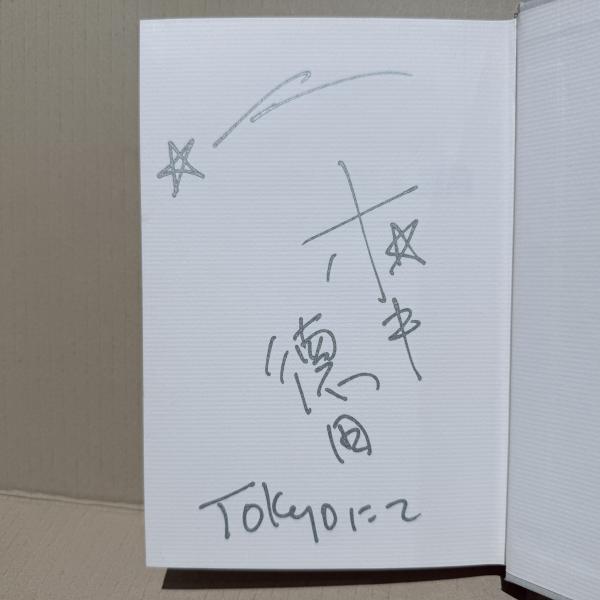 ホキ
徳田
Tokyoにて